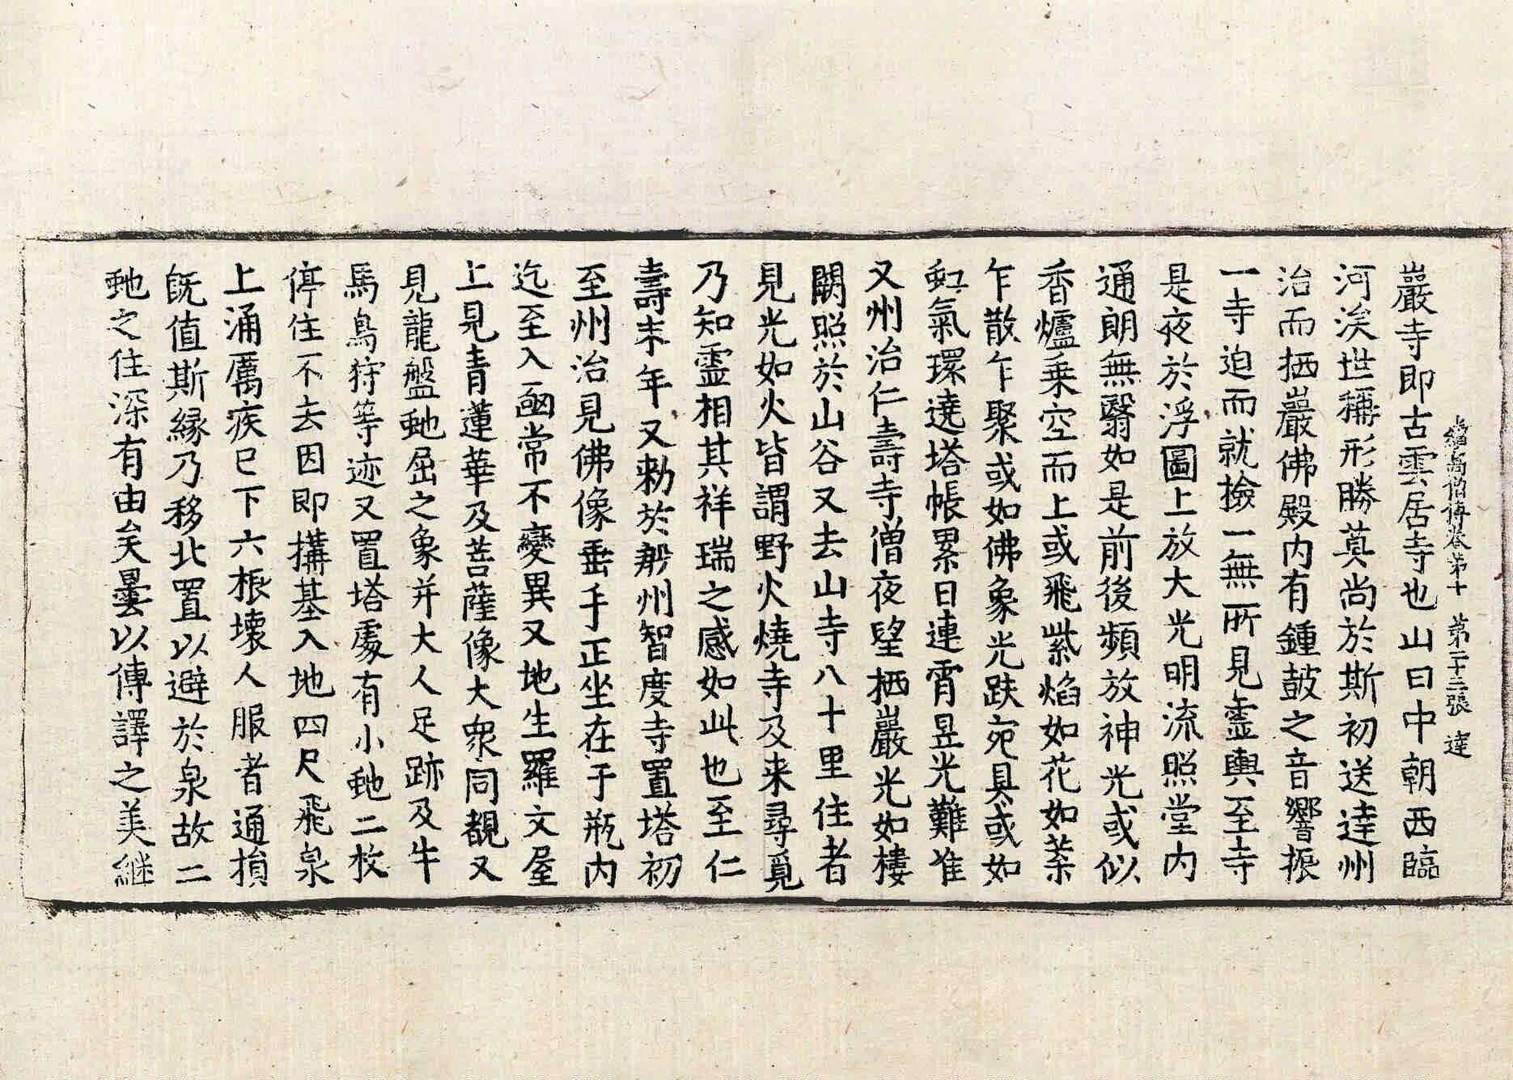 續高僧傳卷第十　第二十三張　達
巖寺即古雲居寺也山曰中朝西臨
河涘世稱形勝莫尚於斯初送達州
治而栖巖佛殿内有鍾鼓之音響振
一寺迫而就撿一無所見靈輿至寺
是夜於浮圖上放大光明流照堂内
通朗無翳如是前後頻放神光或似
香爐乗空而上或飛紫焰如花如葉
乍散乍聚或如佛象光趺宛具或如
虹氣環遶塔帳累日連霄昱光難准
又州治仁壽寺僧夜望栖巖光如樓
闕照於山谷又去山寺八十里住者
見光如火皆謂野火燒寺及来尋覓
乃知靈相其祥瑞之感如此也至仁
壽末年又勑於殷州智度寺置塔初
至州治見佛像垂手正坐在于瓶内
迄至入函常不變異又地生羅文屋
上見青蓮華及菩薩像大衆同覩又
見龍盤虵屈之象并大人足跡及牛
馬鳥狩等迹又置塔處有小虵二枚
停住不去因即搆基入地四尺飛泉
上涌厲疾已下六根壞人服者通損
既值斯縁乃移北置以避於泉故二
虵之住深有由矣曇以傳譯之美継